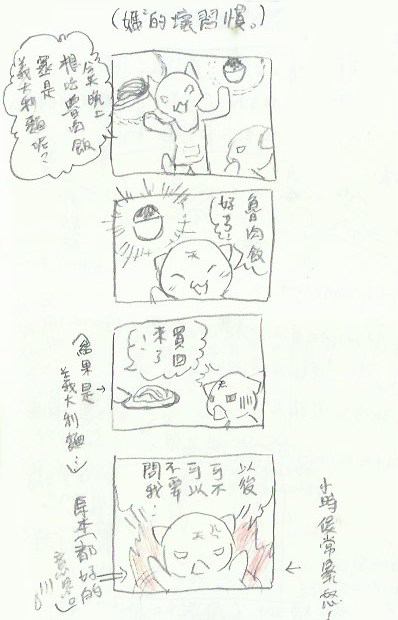 (媽的壞習慣。)
今晚上
想吃魯肉飯
還是
義大利麵呢?
魯肉飯
買回
來了
結果是
義大利麵…
以後
可不
可以
不要
問我…
小時候常暴怒!
原本都好的
意思。